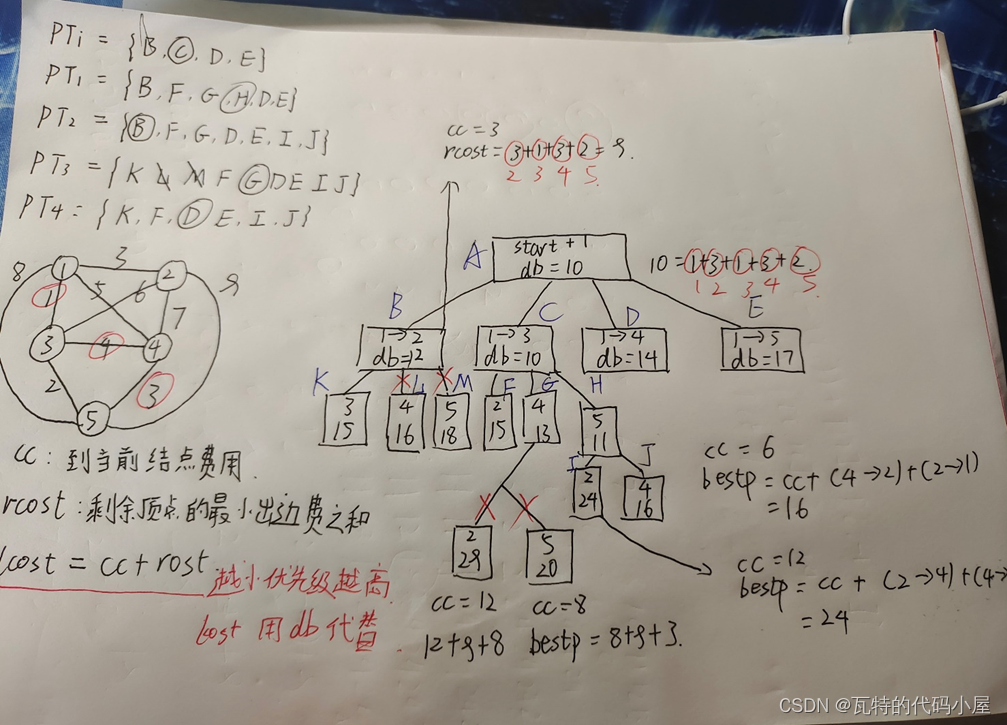 PTi = {B, C, D, E}
PT1 = {B, F, G, H, D, E}
PT2 = {B, F, G, D, E, I, J}
PT3 = {K L M F G D E I J}
PT4 = {K, F, D, E, I, J}
cc = 3
rcost = 3+1+3+2 = 9.
2 3 4 5.
A
start + 1
db = 10
10 = 1+3+1+3+2.
1 2 3 4 5.
B
C
D
E
1→2
db=12
1→3
db=10
1→4
db=14
1→5
db=17
K
L
M
F
G
H
3
15
4
16
5
18
2
15
4
13
5
11
I
J
2
24
4
16
2
29
5
20
8
1
3
2
9
1
5
6
7
3
4
4
2
3
5
cc : 到当前结点费用.
rcost : 剩余顶点的最小出边费之和
lcost = cc + rost
越小优先级越高
lost 用db代替.
cc = 12
12+9+8
cc=8
bestp = 8+9+3.
cc = 6
bestp = cc + (4→2) + (2→1)
= 16
cc = 12
bestp = cc + (2→4) + (4→
= 24
CSDN @瓦特的代码小屋